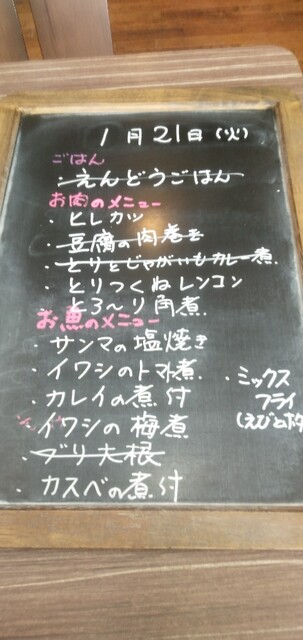 1月21日(火)
ごはん
・えんどうごはん
お肉のメニュー
・ヒレカツ
・豆腐の肉巻き
・とりとじゃがいもカレー煮
・とりつくねレンコン
・とろ〜り角煮
お魚のメニュー
・サンマの塩焼き
・イワシのトマト煮
・カレイの煮付
・イワシの梅煮
・ブリ大根
・カスベの煮付
・ミックス
フライ
(えびとホタ